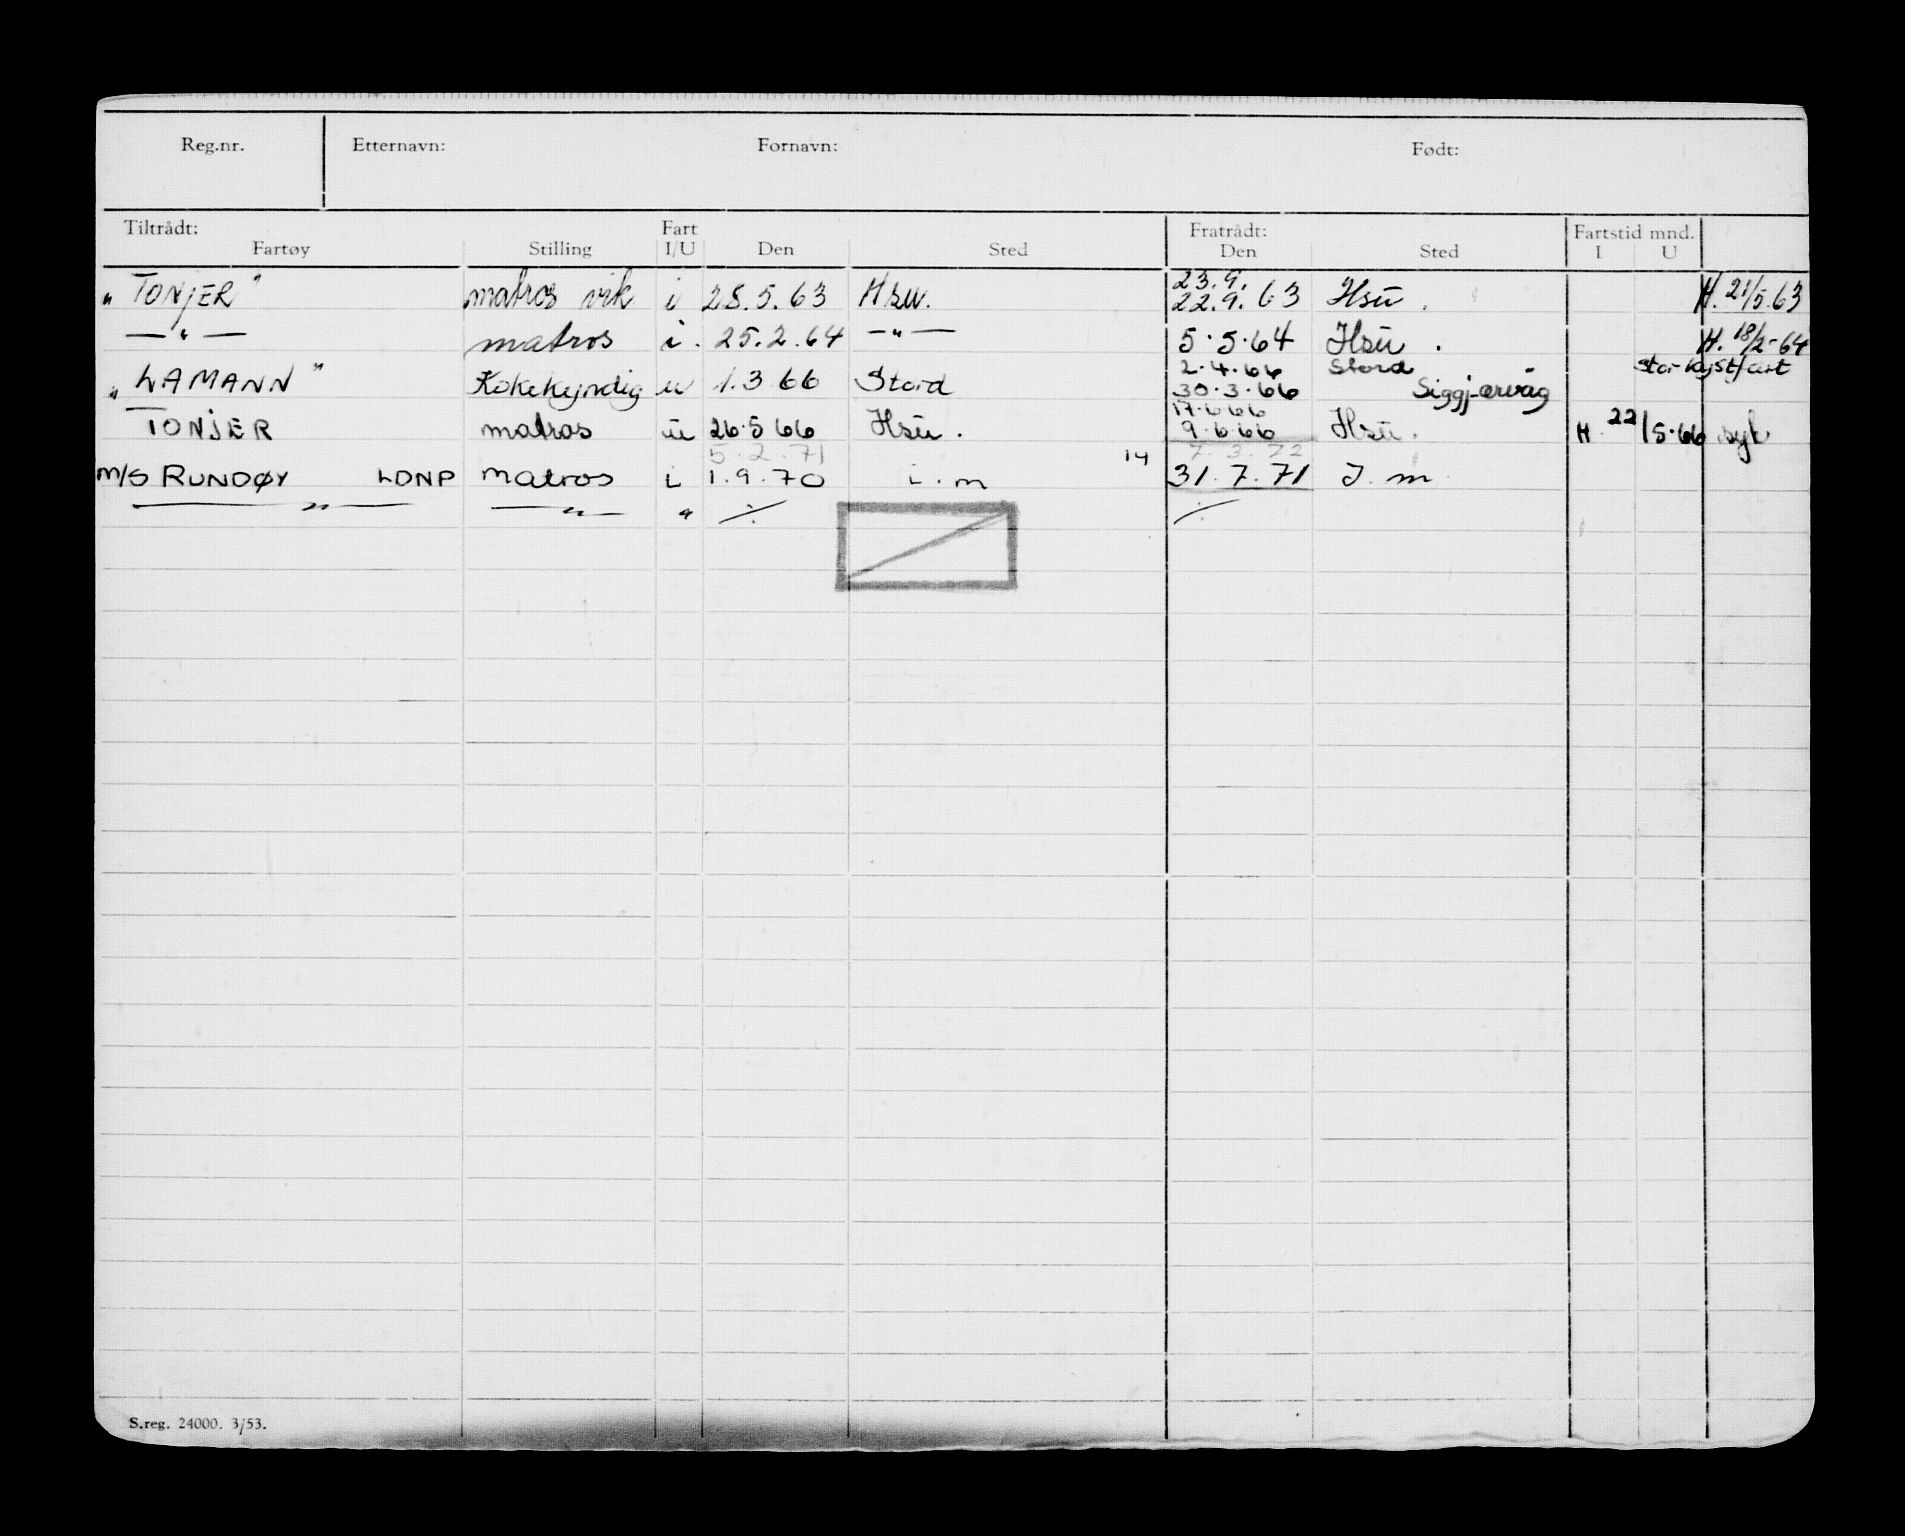 Reg.nr. Etternavn: Fornavn: Født:
Tiltrådt: Fart Fratrådt: Fartstid mnd.
Fartøy Stilling I/U Den Sted Den Sted I U
23.9.
"TONJER" matros vik i 28.5.63 Hsu. 22.9.63 Hsu. H. 21/5.63
— " — matros i. 25.2.64 — " — 5.5.64 Hsu. H. 18/2-64
2.4.66 Stord Stor-kystfart
"LAMANN" Kokekyndig u 1.3 66 Stord 30.3.66 Siggjarvåg
17.6 66
TONJER matros u 26.5 66 Hsu. 9.6 66 Hsu. H. 22/5.66 syk
5.2.71 14 7.3.72
M/S RUNDØY LDNP matros i 1.9.70 i.m 31.7.71 I.m
— " — — " — " ./. ./.
S.reg. 24000. 3/53.